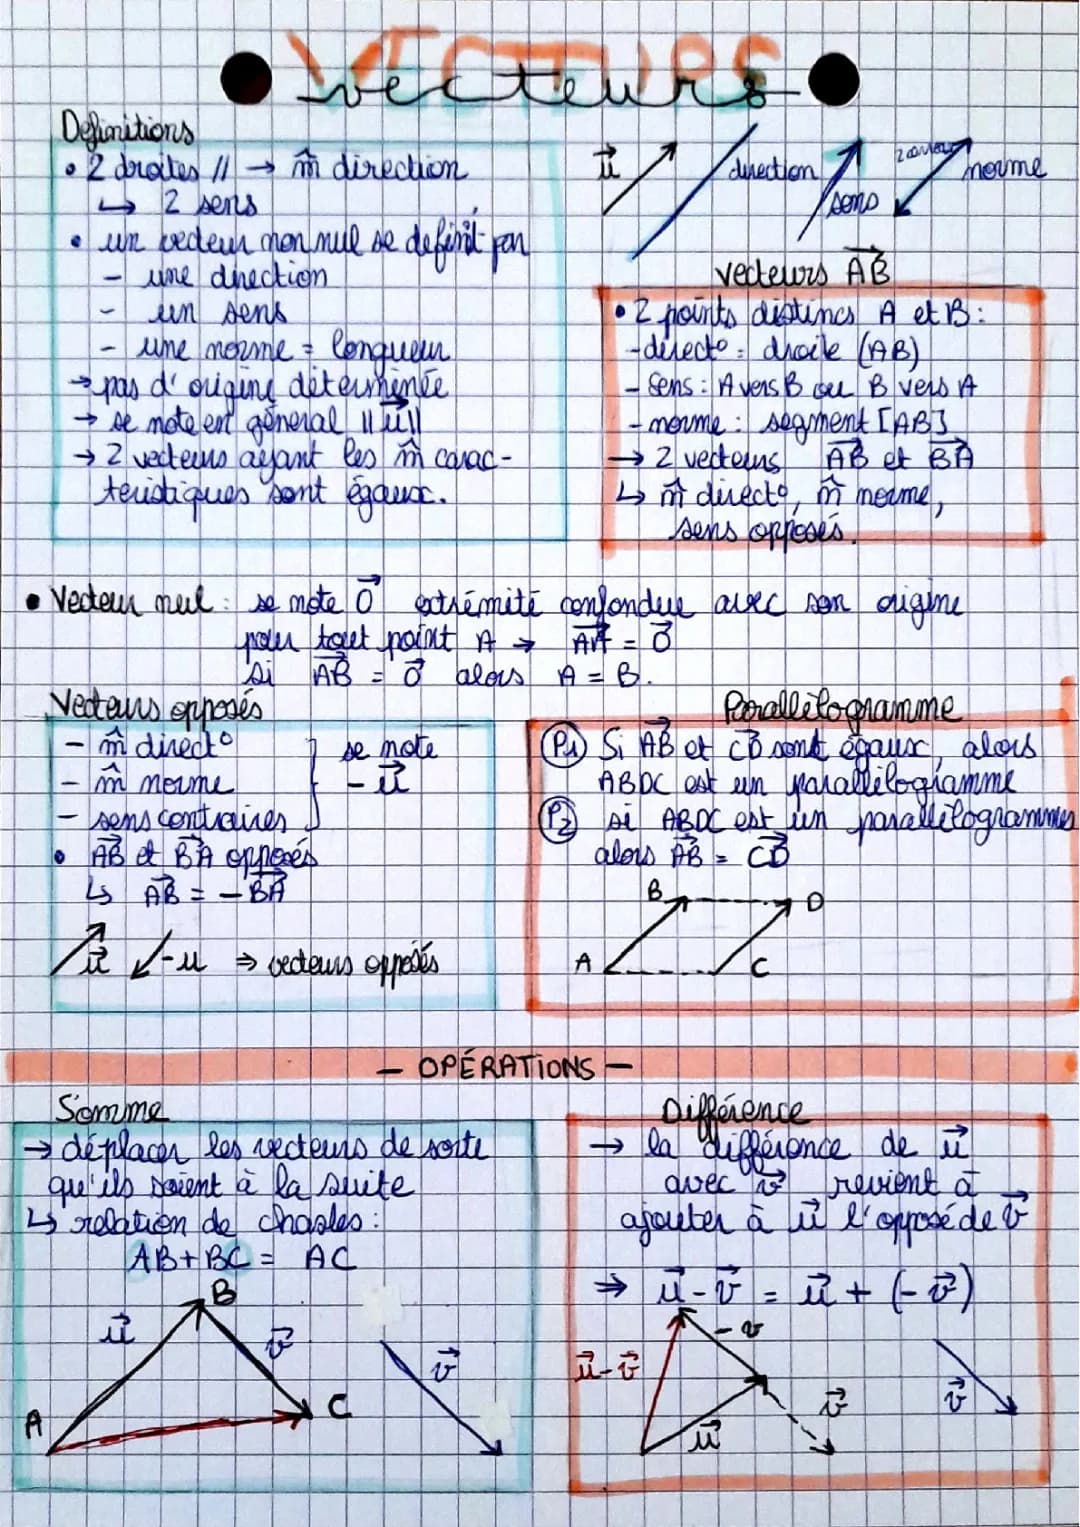 VECTEURS
vecteurs
Définitions
• 2 droites // → m̂ direction
↳ 2 sens
• un vecteur non nul se définit par
- une direction
- un sens
- une norme = longueur
→ pas d'origine déterminée
→ se note en général ||u⃗||
→ 2 vecteurs ayant les m̂ carac-
téristiques sont égaux.
u⃗ direction sens norme
vecteurs A⃗B⃗
• 2 points distincs A et B :
- direct° : droite (AB)
- sens : A vers B ou B vers A
- norme : segment [AB]
→ 2 vecteurs A⃗B⃗ et B⃗A⃗
↳ m̂ direct°, m̂ norme,
sens opposés.
• Vecteur nul : se note 0⃗ extrémité confondue avec son origine
pour tout point A → A⃗A⃗ = 0⃗
si A⃗B⃗ = 0⃗ alors A = B.
Vecteurs opposés
- m̂ direct° } se note
- m̂ norme - u⃗
- sens contraires
• A⃗B⃗ et B⃗A⃗ opposés
↳ A⃗B⃗ = - B⃗A⃗
u⃗ -u ⇒ vecteurs opposés
Parallélogramme
P1 Si A⃗B⃗ et C⃗D⃗ sont égaux, alors
ABDC est un parallélogramme
P2 si ABDC est un parallélogrammes
alors A⃗B⃗ = C⃗D⃗
B D
A C
- OPÉRATIONS -
Somme
→ déplacer les vecteurs de sorte
qu'ils soient à la suite
↳ relation de chasles :
AB + BC = AC
B
u⃗ v⃗ v⃗
A C
Différence
→ la différence de u⃗
avec v⃗ revient à
ajouter à u⃗ l'opposé de v⃗
⇒ u⃗ - v⃗ = u⃗ + (- v⃗)
- v
u⃗ - v⃗ v⃗ v⃗
u⃗